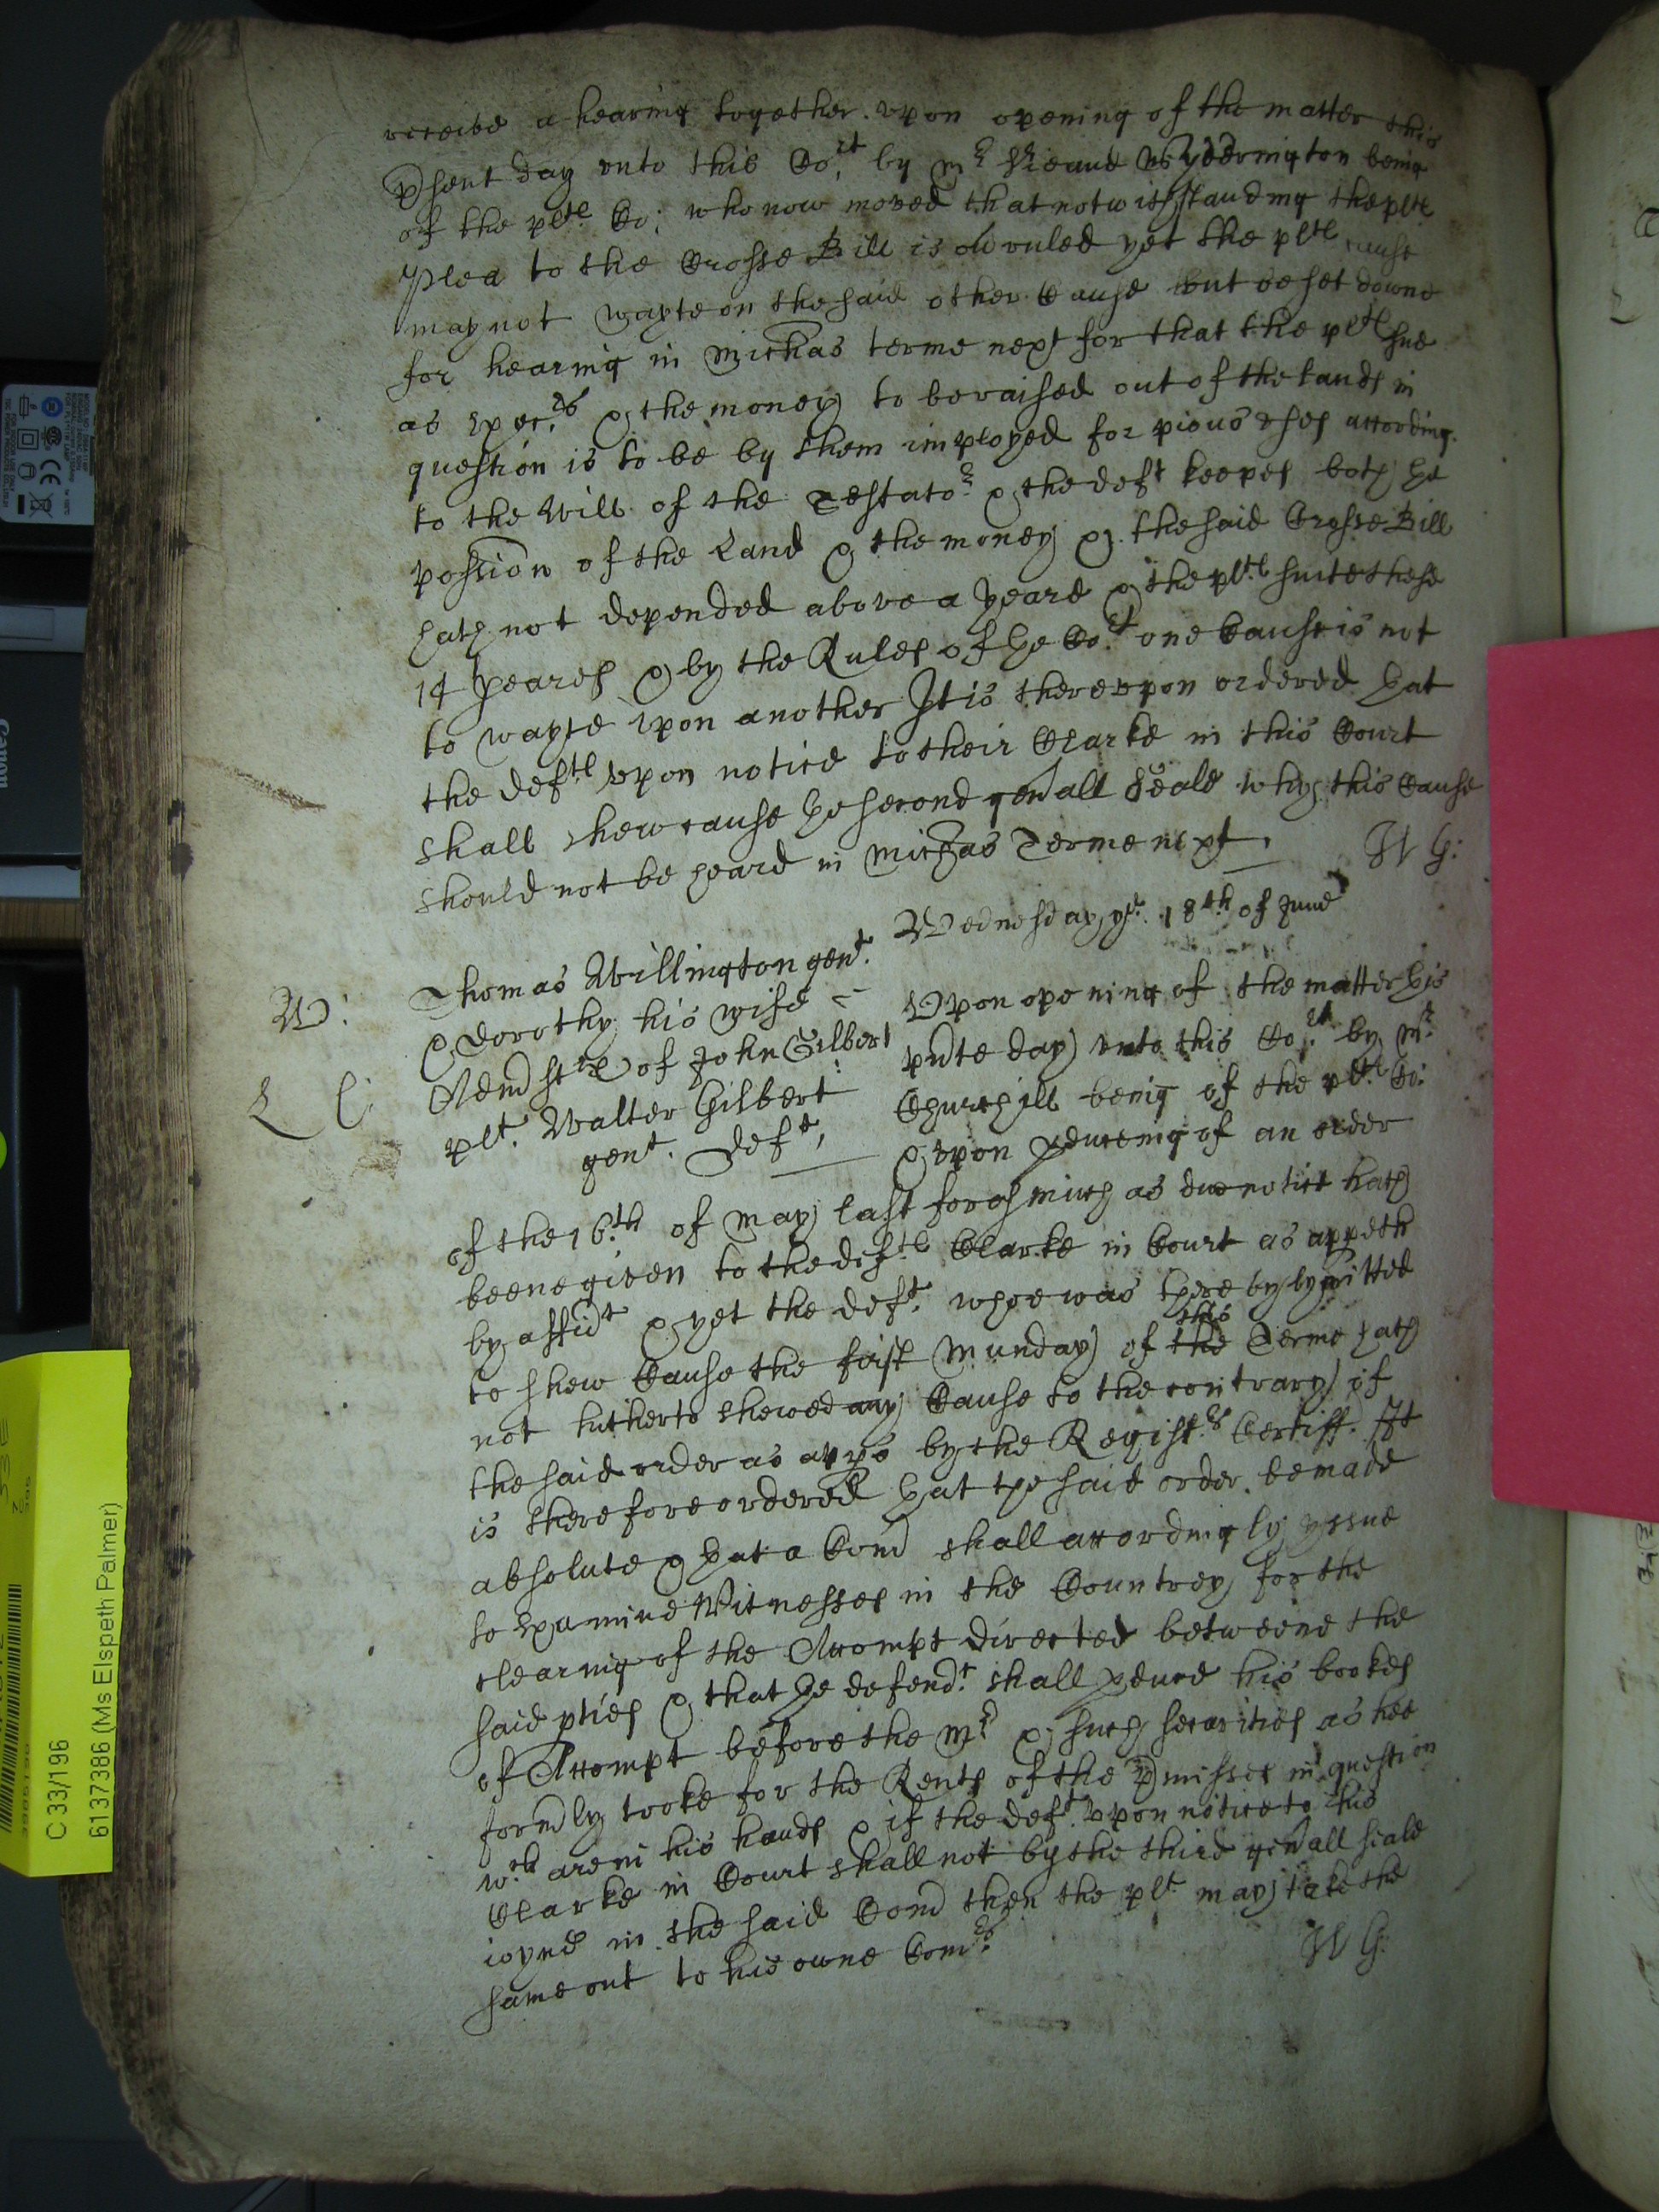 receive a hearing together. vpon opening of the matter this
pÞsent day vnto this Co:rt by mr Wyddrington being
of the plts Co: who now moved that notwithstanding the plts
Plea to the Crosse Bill is ov'ruled yet the plts cause
may not wayte on the said other Cause but be set downe
for hearing in Michas terme next for that the plts sue
as Exec:rs & the money to be raised out of the lands in
question is to be by them imployed for pious vses according
to the Will of the Testator & the deft keepes both the
possion of the Land & the money & the said Crosse Bill
hath not depended above a yeare & the plts suite these
14 yeares & by the Rules of the Cort one Cause is not
to wayte vpon another It is therevpon ordered that
the defts vpon notice to their Clarke in this Court
shall shew cause the second gen'all Seale why this Cause
should not be heard in Michas Terme next.
W G:
Wednesday ye 18th of June
W:
L C
Thomas Willington gent.
& Dorothy his wife
Admstrx of John Gilbert
plt. Walter Gilbert
gent. Deft,
Vpon opening of the matter this
pnte day vnto this Cort by Mr
Churchill being of the plts Co:
& vpon pducing of an order
of the 16th of May last forasmuch as due notice hath
beene given to the defts Clarke in Court as appeth
by affidt & yet the deft. whoe was thereby lymitted
to shew Cause the first Munday of the this Terme hath
not hitherto shewed any Cause to the contrary of
the said order as apps by the Registrs Certiff. It
is therefore ordered that the said order be made
absolute & that a Com shall accordingly yssue
to Examine Witnesses in the Countrey for the
clearing of the Accompt directed betweene the
said pties & that the defendt shall pduce his bookes
of Accompt before the Mr & such securities as hee
form'ly tooke for the Rents of the pmisses in question
wch are in his hands & if the deft vpon notice to his
Clarke in Court shall not by the third gen'all seale
ioyne in the said Com then the plt may take the
same out to his owne Comrs
W G:
C 33/196
61377386 (Ms Elspeth Palmer)
Canon